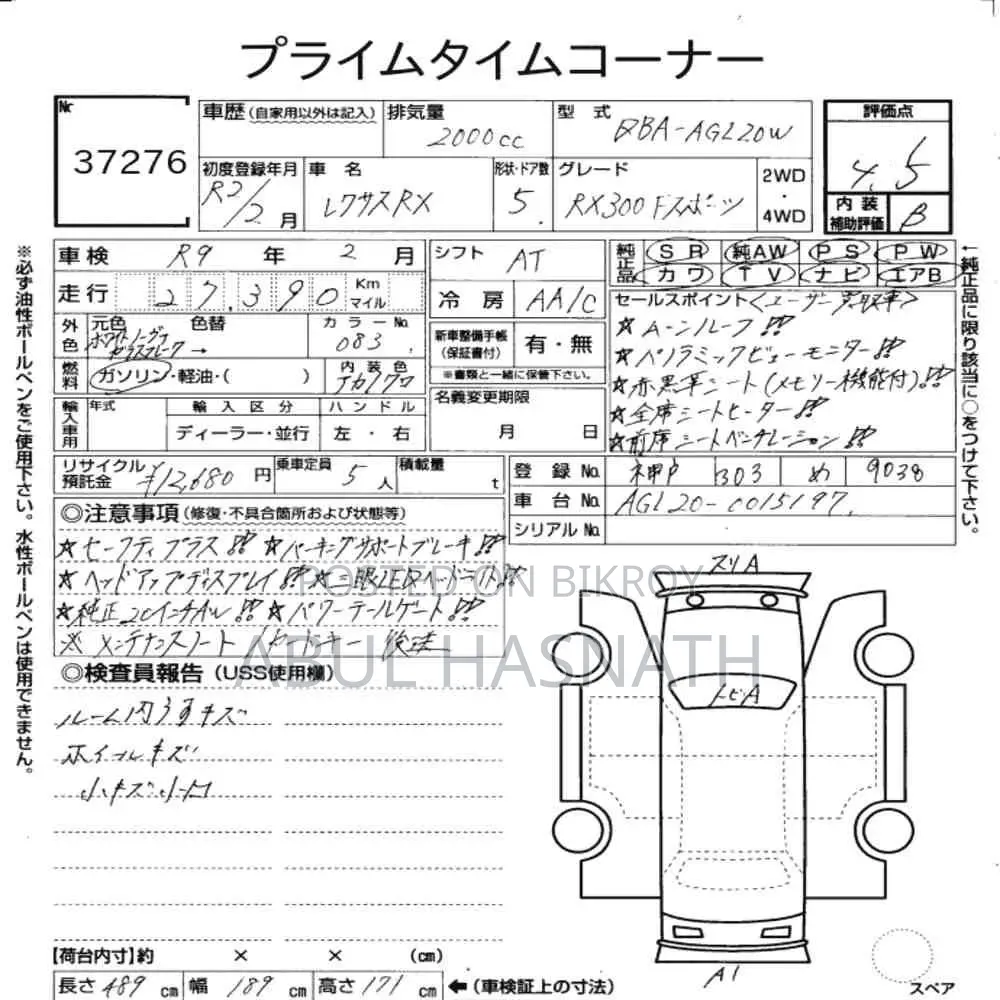 プライムタイムコーナー
Nr
37276
車歴 (自家用以外は記入)
排気量
2000cc
型式
DBA-AGL20W
評価点
4.5
初度登録年月
R2/2月
車名
レクサスRX
形状・ドア数
5
グレード
RX300 Fスポーツ
2WD
・
4WD
内装
補助評価
B
車検 R9 年 2 月
シフト AT
純正品
SR 純AW PS PW
カワ TV ナビ エアB
走行 27,390 Km
マイル
冷房 AA/C
セールスポイント<ユーザー買取車>
★ムーンルーフ!!
★パノラミックビューモニター!!
★赤黒革シート(メモリー機能付)!!
★全席シートヒーター!!
★前席シートベンチレーション!!
外色
元色 色替
ホワイトノーヴァ
ガラスフレーク →
カラーNo.
083
新車整備手帳
(保証書付)
有・無
※書類と一緒に保管下さい。
燃料
ガソリン・軽油・( )
内装色
アカ/クロ
名義変更期限
月 日
輸入車用
年式
輸入区分
ハンドル
ディーラー・並行
左・右
リサイクル
預託金
¥12,680 円
乗車定員 5 人
積載量 t
登録No. 神戸 303 め 9038
車台No. AGL20-0015197
シリアルNo.
◎注意事項 (修復・不具合箇所および状態等)
★セーフティプラス!! ★パーキングサポートブレーキ!!
★ヘッドアップディスプレイ!! ★三眼LEDヘッドライト!!
★純正20インチAW!! ★パワーテールゲート!!
※メンテナンスノート 後送
POSTED ON BIKROY
ABUL HASNATH
◎検査員報告 (USS使用欄)
ルーム内うすキズ
ホイールキズ
小キズ小凹
スリA
トビA
A1
スペア
【荷台内寸】約 × × (cm)
長さ 489 cm 幅 189 cm 高さ 171 cm ←(車検証上の寸法)
※必ず油性ボールペンをご使用下さい。水性ボールペンは使用できません。
←純正品に限り該当に○をつけて下さい。